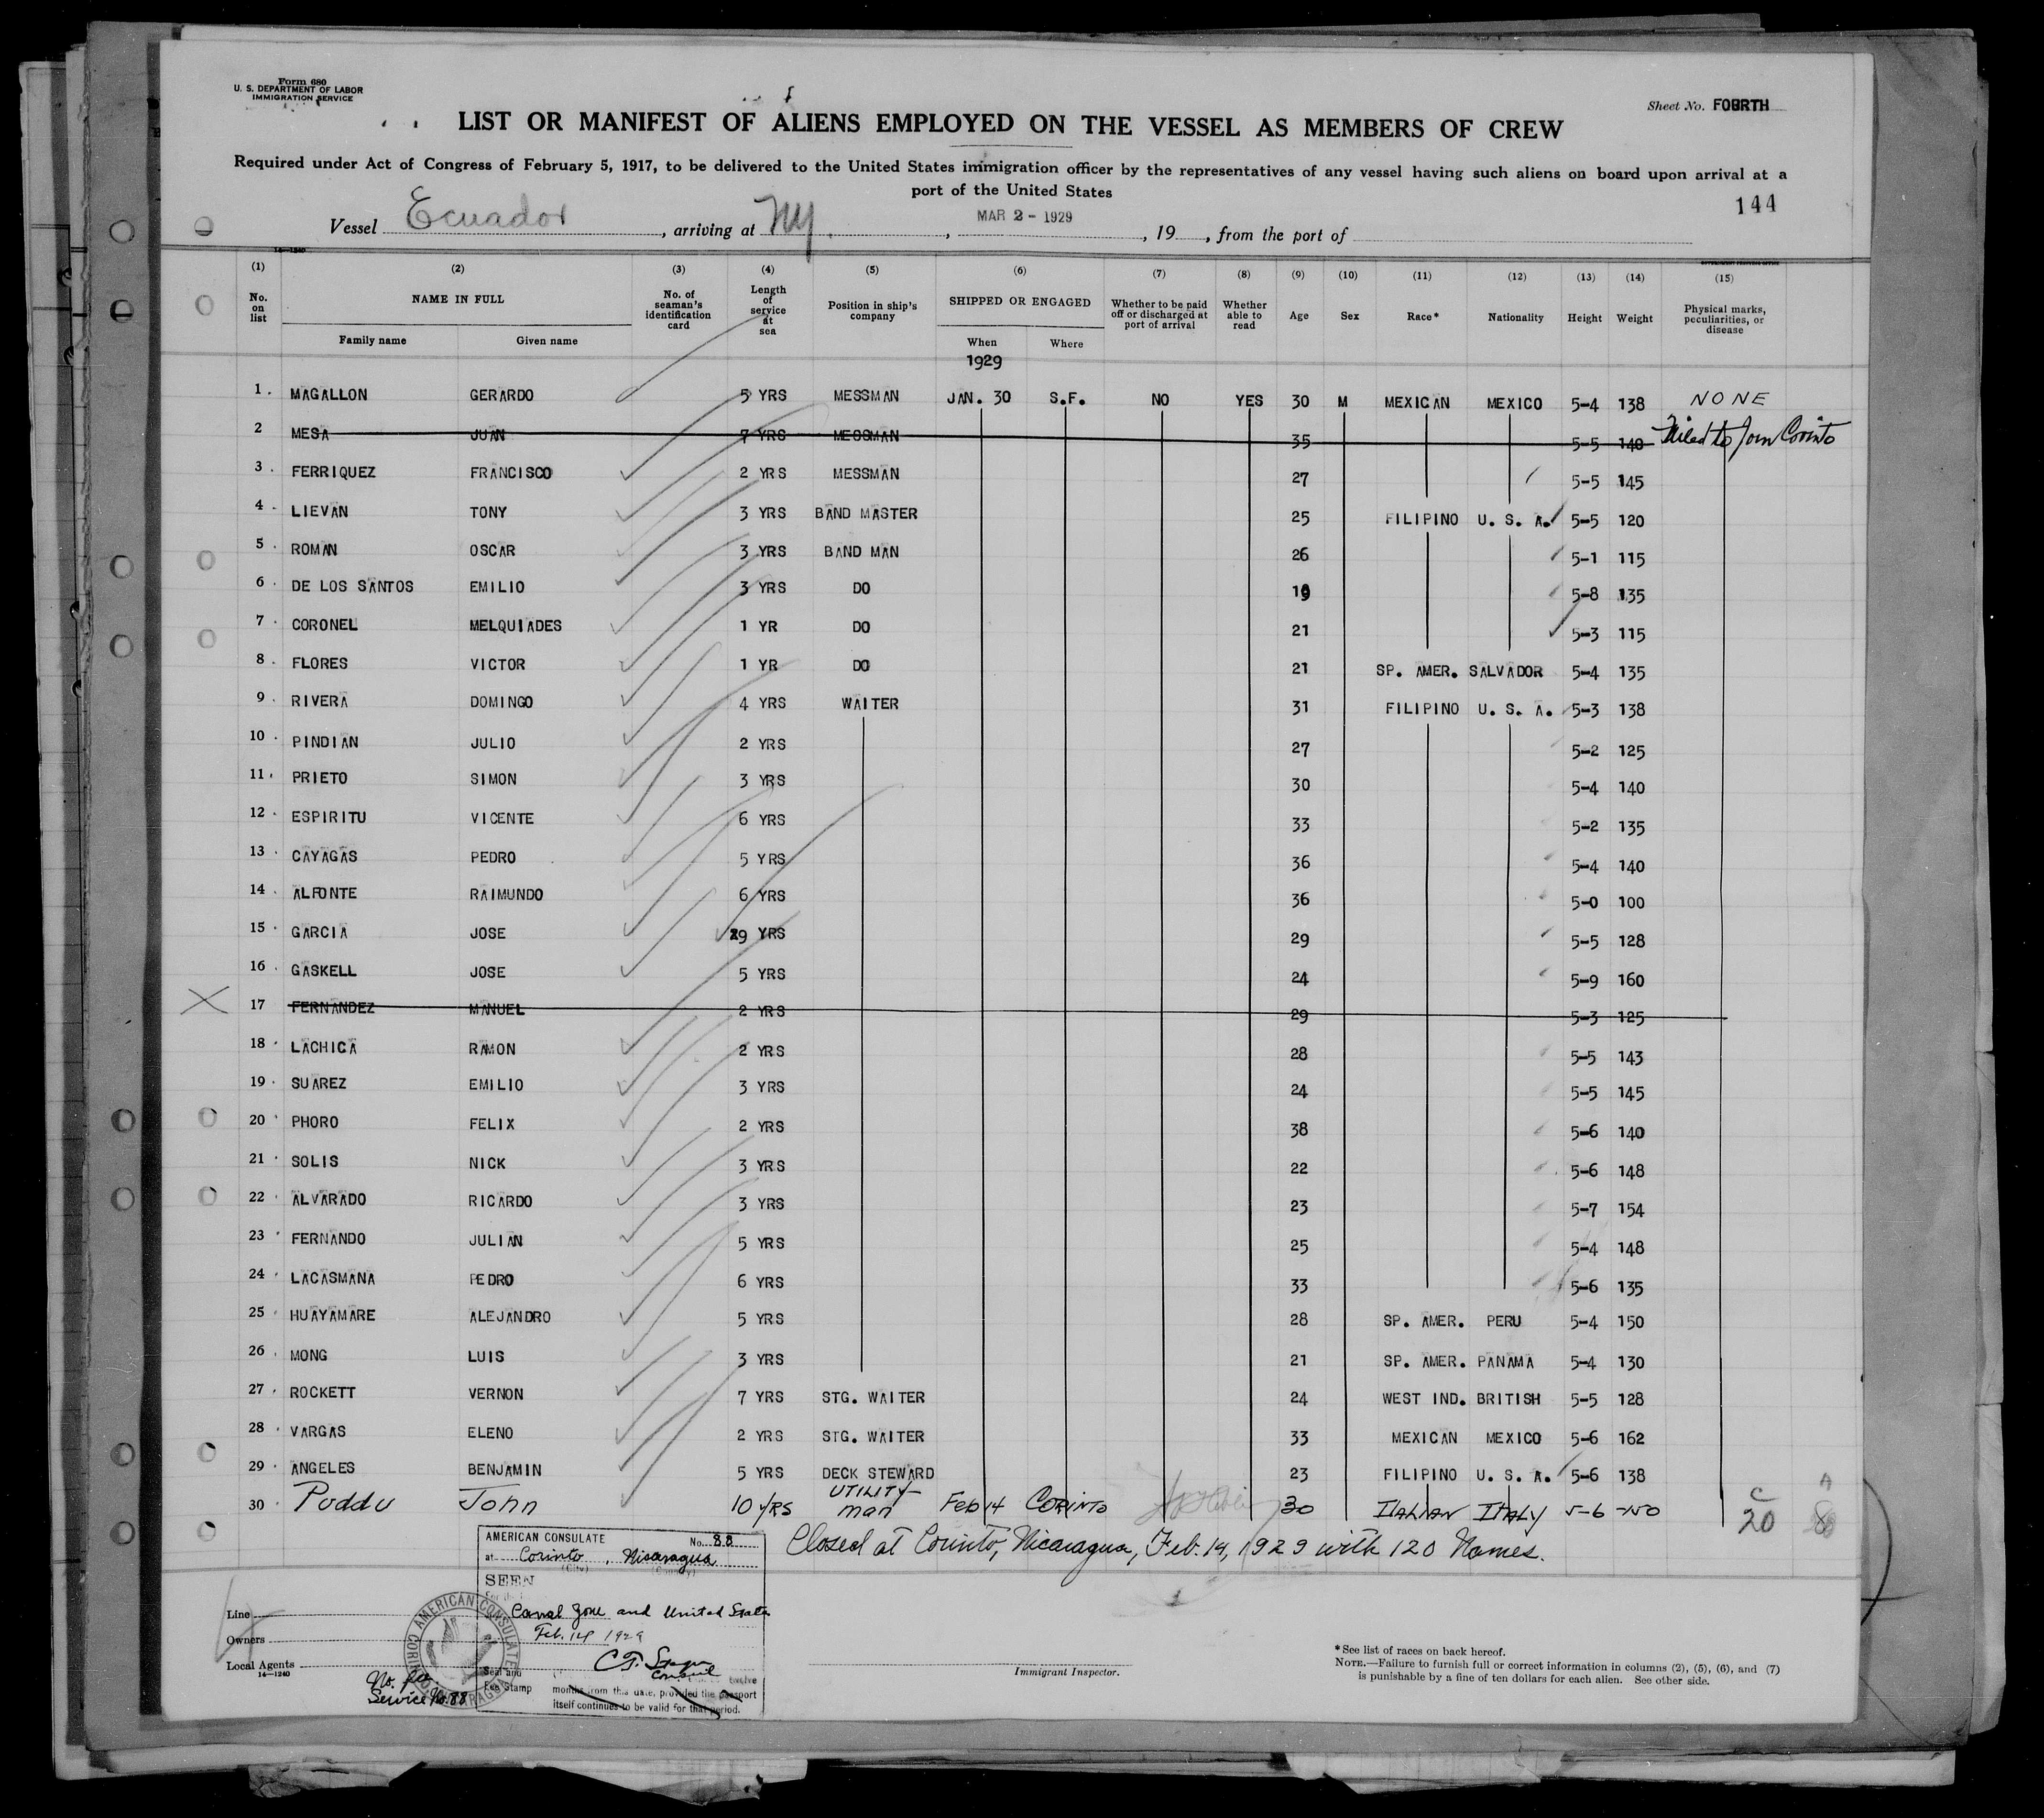 Form 680
U. S. DEPARTMENT OF LABOR
IMMIGRATION SERVICE
Sheet No. FOURTH
LIST OR MANIFEST OF ALIENS EMPLOYED ON THE VESSEL AS MEMBERS OF CREW
Required under Act of Congress of February 5, 1917, to be delivered to the United States immigration officer by the representatives of any vessel having such aliens on board upon arrival at a
port of the United States
144
Vessel Ecuador, arriving at NY., MAR 2 - 1929, 19, from the port of
14—1240
(1) (2) (3) (4) (5) (6) (7) (8) (9) (10) (11) (12) (13) (14) (15)
No. on list NAME IN FULL Family name Given name No. of seaman's identification card Length of service at sea Position in ship's company SHIPPED OR ENGAGED When Where Whether to be paid off or discharged at port of arrival Whether able to read Age Sex Race* Nationality Height Weight Physical marks, peculiarities, or disease
1929
1. MAGALLON GERARDO 5 YRS MESSMAN JAN. 30 S.F. NO YES 30 M MEXICAN MEXICO 5-4 138 NONE
2 MESA JUAN 7 YRS MESSMAN 35 5-5 140 Failed to Join Corinto
3. FERRIQUEZ FRANCISCO 2 YRS MESSMAN 27 5-5 145
4. LIEVAN TONY 3 YRS BAND MASTER 25 FILIPINO U. S. A. 5-5 120
5. ROMAN OSCAR 3 YRS BAND MAN 26 5-1 115
6. DE LOS SANTOS EMILIO 3 YRS DO 19 5-8 135
7. CORONEL MELQUIADES 1 YR DO 21 5-3 115
8. FLORES VICTOR 1 YR DO 21 SP. AMER. SALVADOR 5-4 135
9. RIVERA DOMINGO 4 YRS WAITER 31 FILIPINO U. S. A. 5-3 138
10. PINDIAN JULIO 2 YRS 27 5-2 125
11. PRIETO SIMON 3 YRS 30 5-4 140
12. ESPIRITU VICENTE 6 YRS 33 5-2 135
13. CAYAGAS PEDRO 5 YRS 36 5-4 140
14. ALFONTE RAIMUNDO 6 YRS 36 5-0 100
15. GARCIA JOSE 29 YRS 29 5-5 128
16. GASKELL JOSE 5 YRS 24 5-9 160
17 FERNANDEZ MANUEL 2 YRS 29 5-3 125
18. LACHICA RAMON 2 YRS 28 5-5 143
19. SUAREZ EMILIO 3 YRS 24 5-5 145
20. PHORO FELIX 2 YRS 38 5-6 140
21. SOLIS NICK 3 YRS 22 5-6 148
22. ALVARADO RICARDO 3 YRS 23 5-7 154
23. FERNANDO JULIAN 5 YRS 25 5-4 148
24. LACASMANA PEDRO 6 YRS 33 5-6 135
25. HUAYAMARE ALEJANDRO 5 YRS 28 SP. AMER. PERU 5-4 150
26. MONG LUIS 3 YRS 21 SP. AMER. PANAMA 5-4 130
27. ROCKETT VERNON 7 YRS STG. WAITER 24 WEST IND. BRITISH 5-5 128
28. VARGAS ELENO 2 YRS STG. WAITER 33 MEXICAN MEXICO 5-6 162
29. ANGELES BENJAMIN 5 YRS DECK STEWARD 23 FILIPINO U. S. A. 5-6 138
30 Poddu John 10 yrs UTILITY man Feb 14 CORINTO 30 ITALIAN ITALY 5-6 150
C 20 A 8
Closed at Corinto, Nicaragua, Feb. 14, 1929 with 120 Names.
AMERICAN CONSULATE No. 88
at Corinto, Nicaragua
(City) (Country)
SEEN
For the
Canal Zone and United States
Feb. 14 1929
Consul
Seal and
Fee Stamp
twelve
months from this date, provided the passport
itself continues to be valid for that period.
AMERICAN CONSULATE CORINTO NICARAGUA
Line
Owners
Local Agents
14—1240
No. fee
Service No. 88
Immigrant Inspector.
*See list of races on back hereof.
NOTE.—Failure to furnish full or correct information in columns (2), (5), (6), and (7)
is punishable by a fine of ten dollars for each alien. See other side.